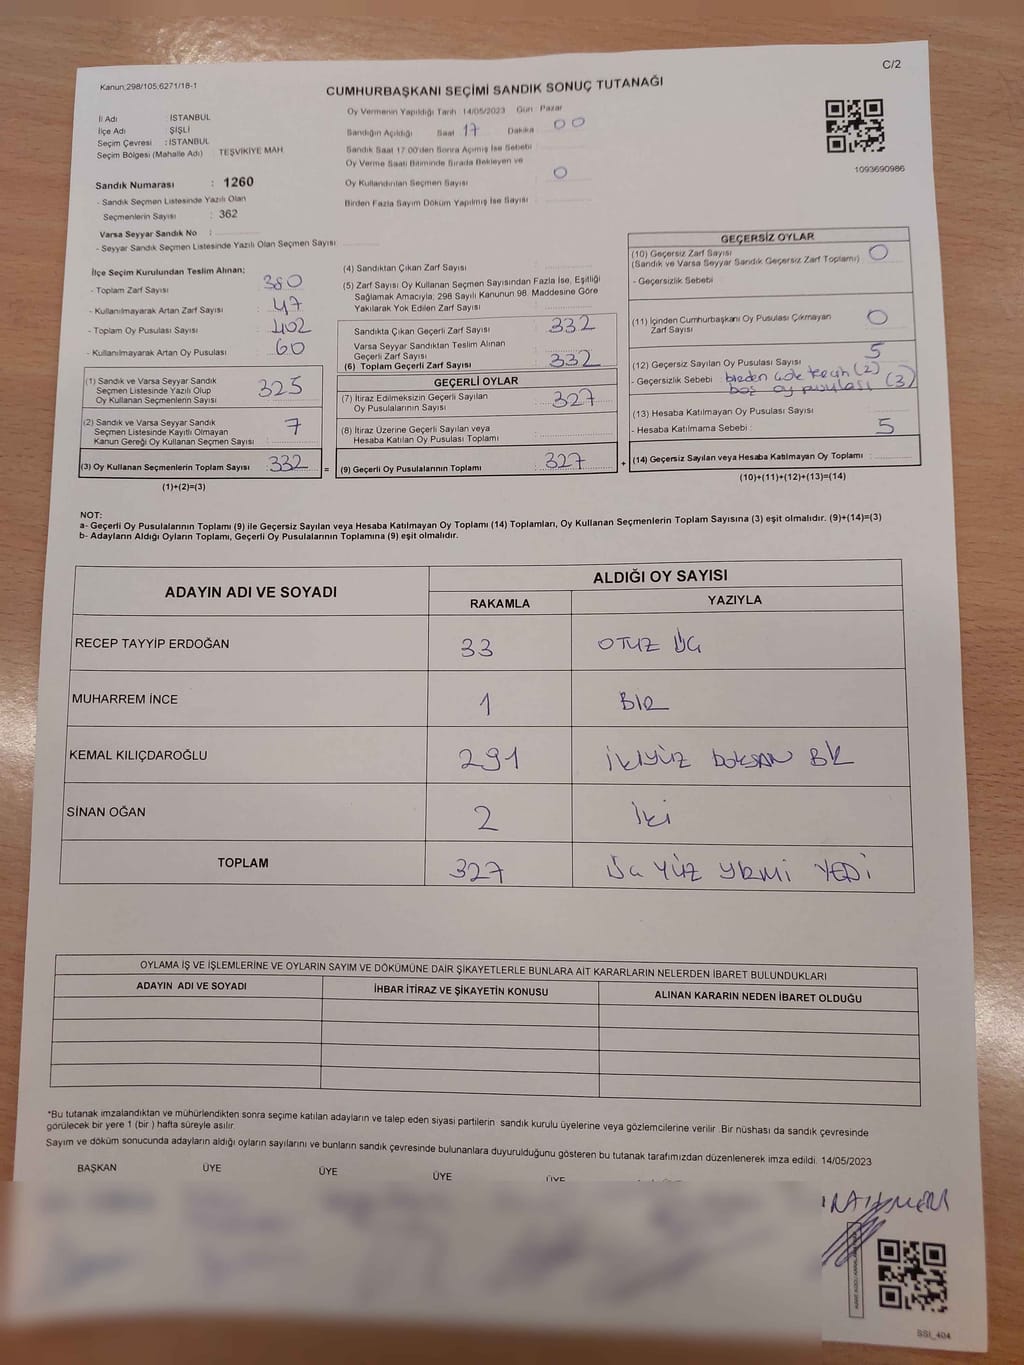 C/2
Kanun,298/105,6271/18-1
CUMHURBAŞKANI SEÇİMİ SANDIK SONUÇ TUTANAĞI
İl Adı : İSTANBUL
İlçe Adı : ŞİŞLİ
Seçim Çevresi : İSTANBUL
Seçim Bölgesi (Mahalle Adı) : TEŞVİKİYE MAH.
Sandık Numarası : 1260
- Sandık Seçmen Listesinde Yazılı Olan
Seçmenlerin Sayısı : 362
Varsa Seyyar Sandık No :
- Seyyar Sandık Seçmen Listesinde Yazılı Olan Seçmen Sayısı
Oy Vermenin Yapıldığı Tarih 14/05/2023 Gün Pazar
Sandığın Açıldığı Saat 17 Dakika 00
Sandık Saat 17:00'den Sonra Açılmış İse Sebebi
Oy Verme Saati Bitiminde Sırada Bekleyen ve
Oy Kullandırılan Seçmen Sayısı 0
Birden Fazla Sayım Döküm Yapılmış İse Sayısı
1093690986
İlçe Seçim Kurulundan Teslim Alınan;
- Toplam Zarf Sayısı 380
- Kullanılmayarak Artan Zarf Sayısı 47
- Toplam Oy Pusulası Sayısı 402
- Kullanılmayarak Artan Oy Pusulası 60
(1) Sandık ve Varsa Seyyar Sandık
Seçmen Listesinde Yazılı Olup
Oy Kullanan Seçmenlerin Sayısı 325
(2) Sandık ve Varsa Seyyar Sandık
Seçmen Listesinde Kayıtlı Olmayan
Kanun Gereği Oy Kullanan Seçmen Sayısı : 7
(3) Oy Kullanan Seçmenlerin Toplam Sayısı : 332 =
(1)+(2)=(3)
(4) Sandıktan Çıkan Zarf Sayısı
(5) Zarf Sayısı Oy Kullanan Seçmen Sayısından Fazla İse, Eşitliği
Sağlamak Amacıyla, 298 Sayılı Kanunun 98. Maddesine Göre
Yakılarak Yok Edilen Zarf Sayısı
Sandıkta Çıkan Geçerli Zarf Sayısı : 332
Varsa Seyyar Sandıktan Teslim Alınan
Geçerli Zarf Sayısı
(6) Toplam Geçerli Zarf Sayısı : 332
GEÇERLİ OYLAR
(7) İtiraz Edilmeksizin Geçerli Sayılan
Oy Pusulalarının Sayısı : 327
(8) İtiraz Üzerine Geçerli Sayılan veya
Hesaba Katılan Oy Pusulası Toplamı
(9) Geçerli Oy Pusulalarının Toplamı : 327 +
GEÇERSİZ OYLAR
(10) Geçersiz Zarf Sayısı
(Sandık ve Varsa Seyyar Sandık Geçersiz Zarf Toplamı) 0
- Geçersizlik Sebebi :
(11) İçinden Cumhurbaşkanı Oy Pusulası Çıkmayan
Zarf Sayısı 0
(12) Geçersiz Sayılan Oy Pusulası Sayısı 5
- Geçersizlik Sebebi : birden çok tercih (2)
boş oy pusulası (3)
(13) Hesaba Katılmayan Oy Pusulası Sayısı
- Hesaba Katılmama Sebebi : 5
(14) Geçersiz Sayılan veya Hesaba Katılmayan Oy Toplamı :
(10)+(11)+(12)+(13)=(14)
NOT:
a- Geçerli Oy Pusulalarının Toplamı (9) ile Geçersiz Sayılan veya Hesaba Katılmayan Oy Toplamı (14) Toplamları, Oy Kullanan Seçmenlerin Toplam Sayısına (3) eşit olmalıdır. (9)+(14)=(3)
b- Adayların Aldığı Oyların Toplamı, Geçerli Oy Pusulalarının Toplamına (9) eşit olmalıdır.
ADAYIN ADI VE SOYADI
ALDIĞI OY SAYISI
RAKAMLA YAZIYLA
RECEP TAYYİP ERDOĞAN 33 OTUZ ÜÇ
MUHARREM İNCE 1 BİR
KEMAL KILIÇDAROĞLU 291 İKİYÜZ DOKSAN BİR
SİNAN OĞAN 2 İki
TOPLAM 327 ÜÇ YÜZ YİRMİ YEDİ
OYLAMA İŞ VE İŞLEMLERİNE VE OYLARIN SAYIM VE DÖKÜMÜNE DAİR ŞİKAYETLERLE BUNLARA AİT KARARLARIN NELERDEN İBARET BULUNDUKLARI
ADAYIN ADI VE SOYADI İHBAR İTİRAZ VE ŞİKAYETİN KONUSU ALINAN KARARIN NEDEN İBARET OLDUĞU
*Bu tutanak imzalandıktan ve mühürlendikten sonra seçime katılan adayların ve talep eden siyasi partilerin sandık kurulu üyelerine veya gözlemcilerine verilir. Bir nüshası da sandık çevresinde
görülecek bir yere 1 (bir ) hafta süreyle asılır.
Sayım ve döküm sonucunda adayların aldığı oyların sayılarını ve bunların sandık çevresinde bulunanlara duyurulduğunu gösteren bu tutanak tarafımızdan düzenlenerek imza edildi. 14/05/2023
BAŞKAN ÜYE ÜYE ÜYE ÜYE
SSI_404